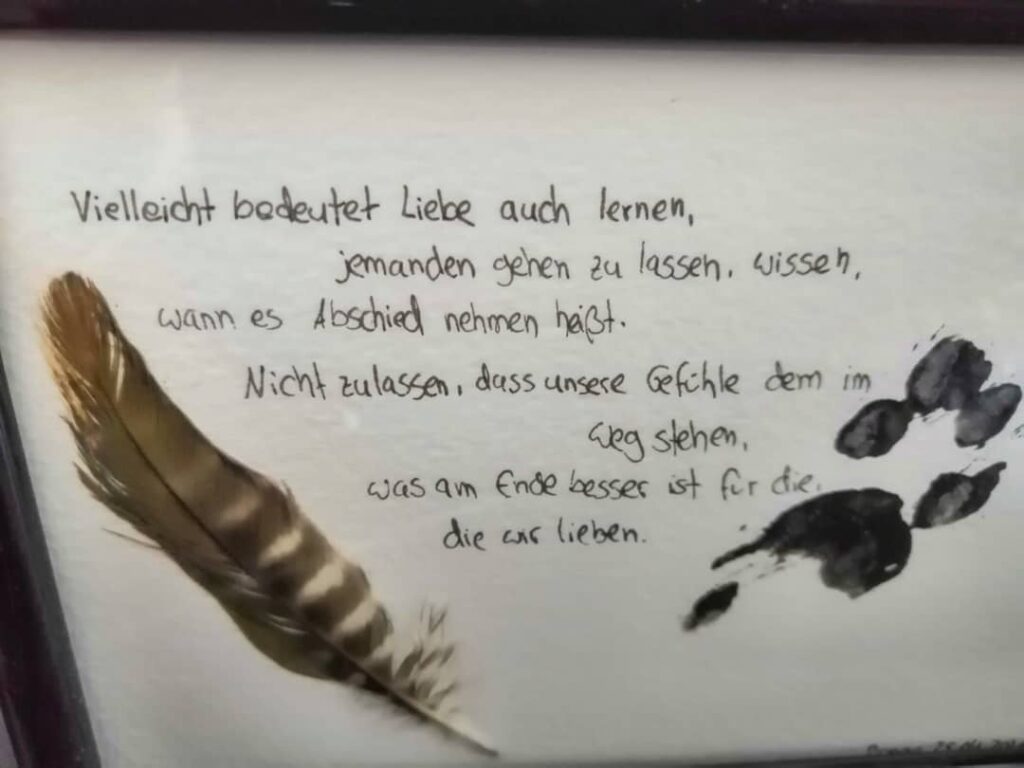 Vielleicht bedeutet Liebe auch lernen,
jemanden gehen zu lassen, wissen,
wann es Abschied nehmen heißt.
Nicht zulassen, dass unsere Gefühle dem im
Weg stehen,
was am Ende besser ist für die,
die wir lieben.